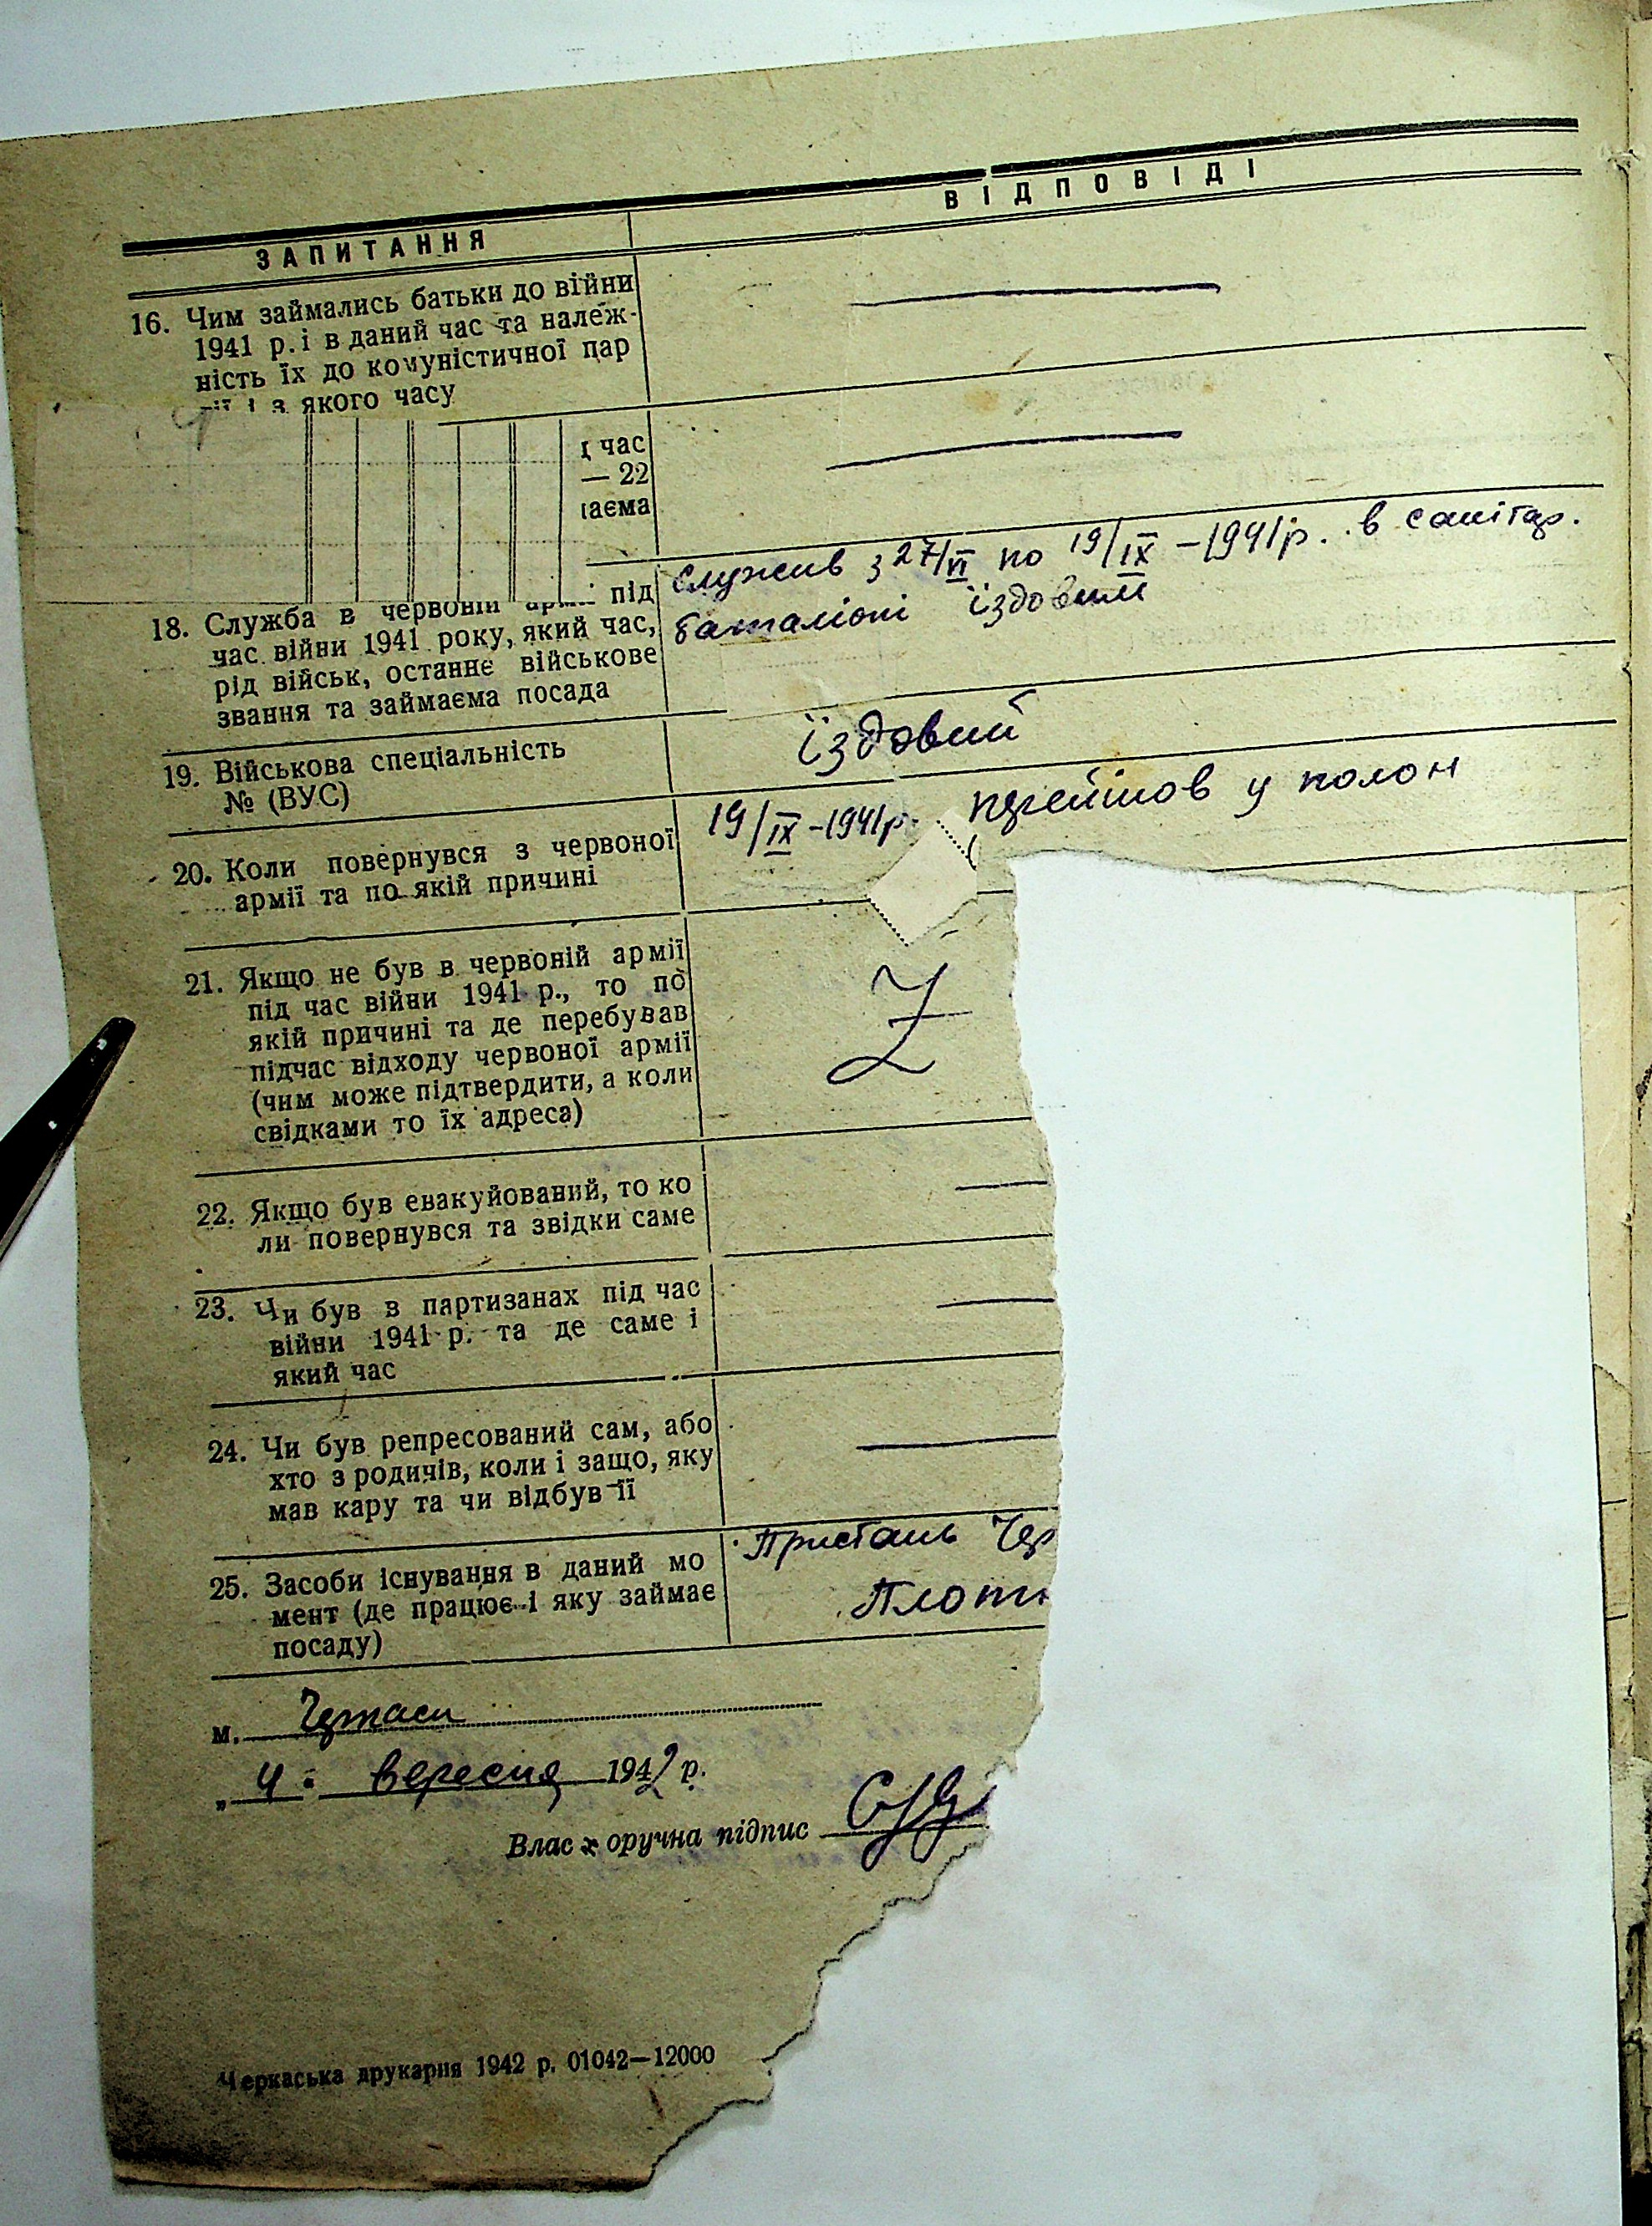 ЗАПИТАННЯ
ВІДПОВІДІ
16. Чим займались батьки до війни
1941 р. і в даний час та належ-
ність їх до комуністичної пар
якого часу
час
— 22
аєма
18. Служба в червоній під
час війни 1941 року, який час,
рід військ, останнє військове
звання та займаєма посада
служив з 27/VI по 19/IX – 1941 р. в санітар.
баталіоні їздовий
19. Військова спеціальність
№ (ВУС)
їздовий
20. Коли повернувся з червоної
армії та по якій причині
19/IX – 1941 р. перейшов у полон
21. Якщо не був в червоній армії
під час війни 1941 р., то по
якій причині та де перебував
підчас відходу червоної армії
(чим може підтвердити, а коли
свідками то їх адреса)
Z
22. Якщо був евакуйований, то ко
ли повернувся та звідки саме
23. Чи був в партизанах під час
війни 1941 р. та де саме і
який час
24. Чи був репресований сам, або
хто з родичів, коли і защо, яку
мав кару та чи відбув її
25. Засоби існування в даний мо
мент (де працює і яку займає
посаду)
Пристань Чер
Плотн
м. Черкаси
„ 4 " вересня 1942 р.
Влас х оручна підпис
Черкаська друкарня 1942 р. 01042—12000